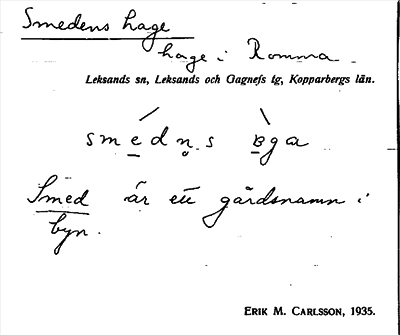 Smedens hage
hage i Romma
Leksands sn, Leksands och Gagnefs tg, Kopparbergs län.
smedn̥s aga
Smed är ett gårdsnamn i
byn.
ERIK M. CARLSSON, 1935.